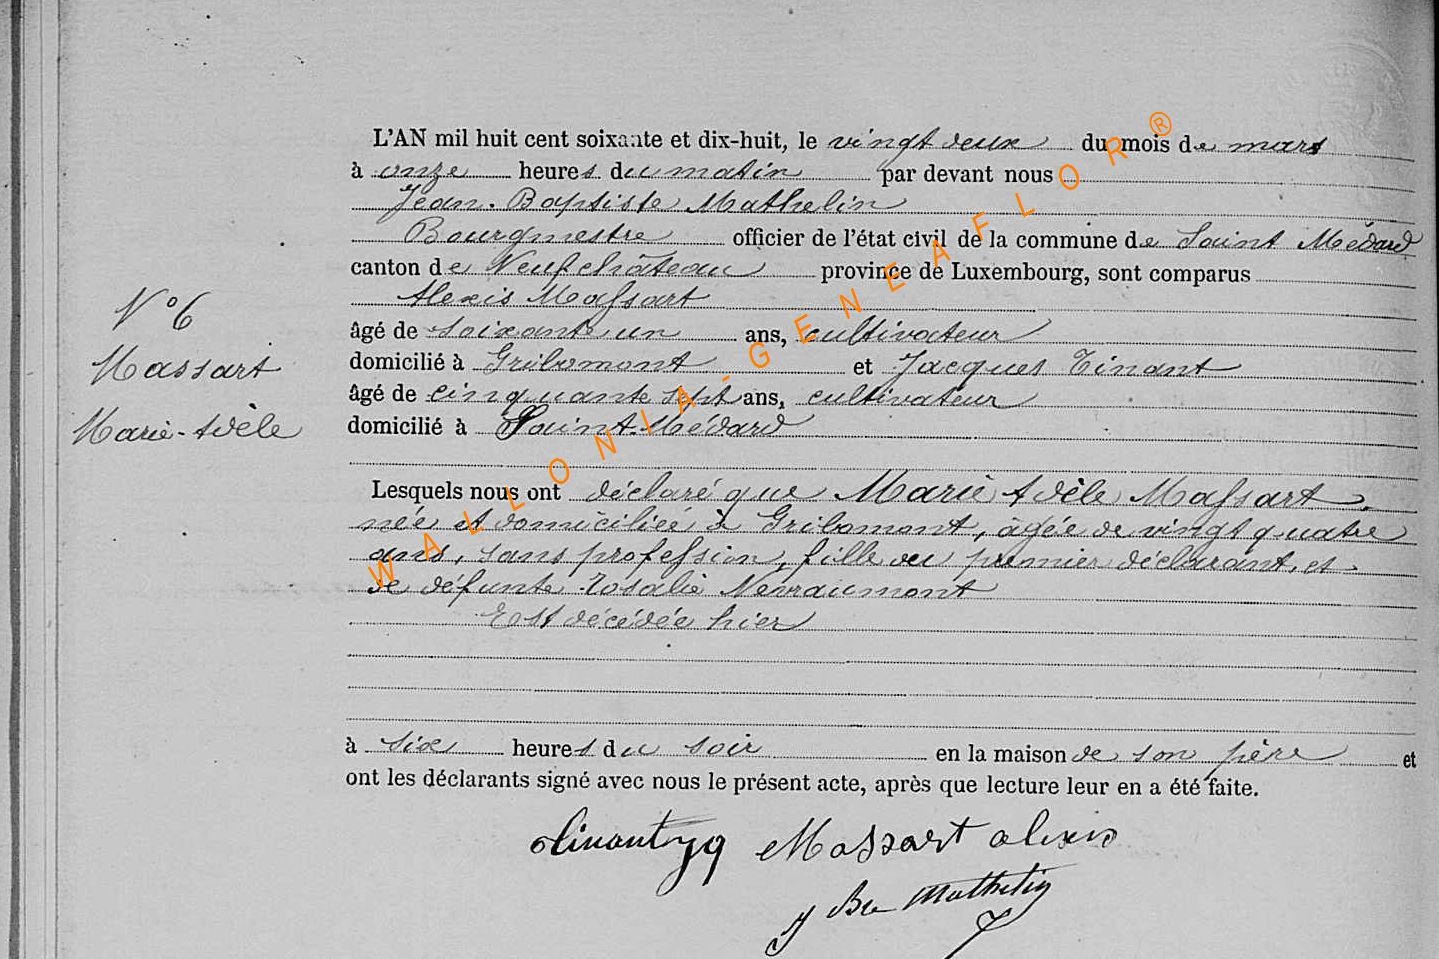 L'AN mil huit cent soixante et dix-huit, le vingt deux du mois de mars
à onze heures du matin par devant nous
Jean-Baptiste Mathelin
Bourgmestre officier de l'état civil de la commune de Saint Médard
canton de Neufchâteau province de Luxembourg, sont comparus
Alexis Massart
N° 6
âgé de soixante un ans, cultivateur
Massart
domicilié à Gribomont et Jacques Tinant
âgé de cinquante sept ans, cultivateur
Marie-Adèle
domicilié à Saint-Médard
Lesquels nous ont déclaré que Marie Adèle Massart,
née et domiciliée à Gribomont, âgée de vingt quatre
ans, sans profession, fille du premier déclarant, et
de défunte Rosalie Nevraumont
Est décédée hier
à six heures du soir en la maison de son père et
ont les déclarants signé avec nous le présent acte, après que lecture leur en a été faite.
Massart alexis
J Bte Mathelin
WALLONIA-GENEAFLOR®